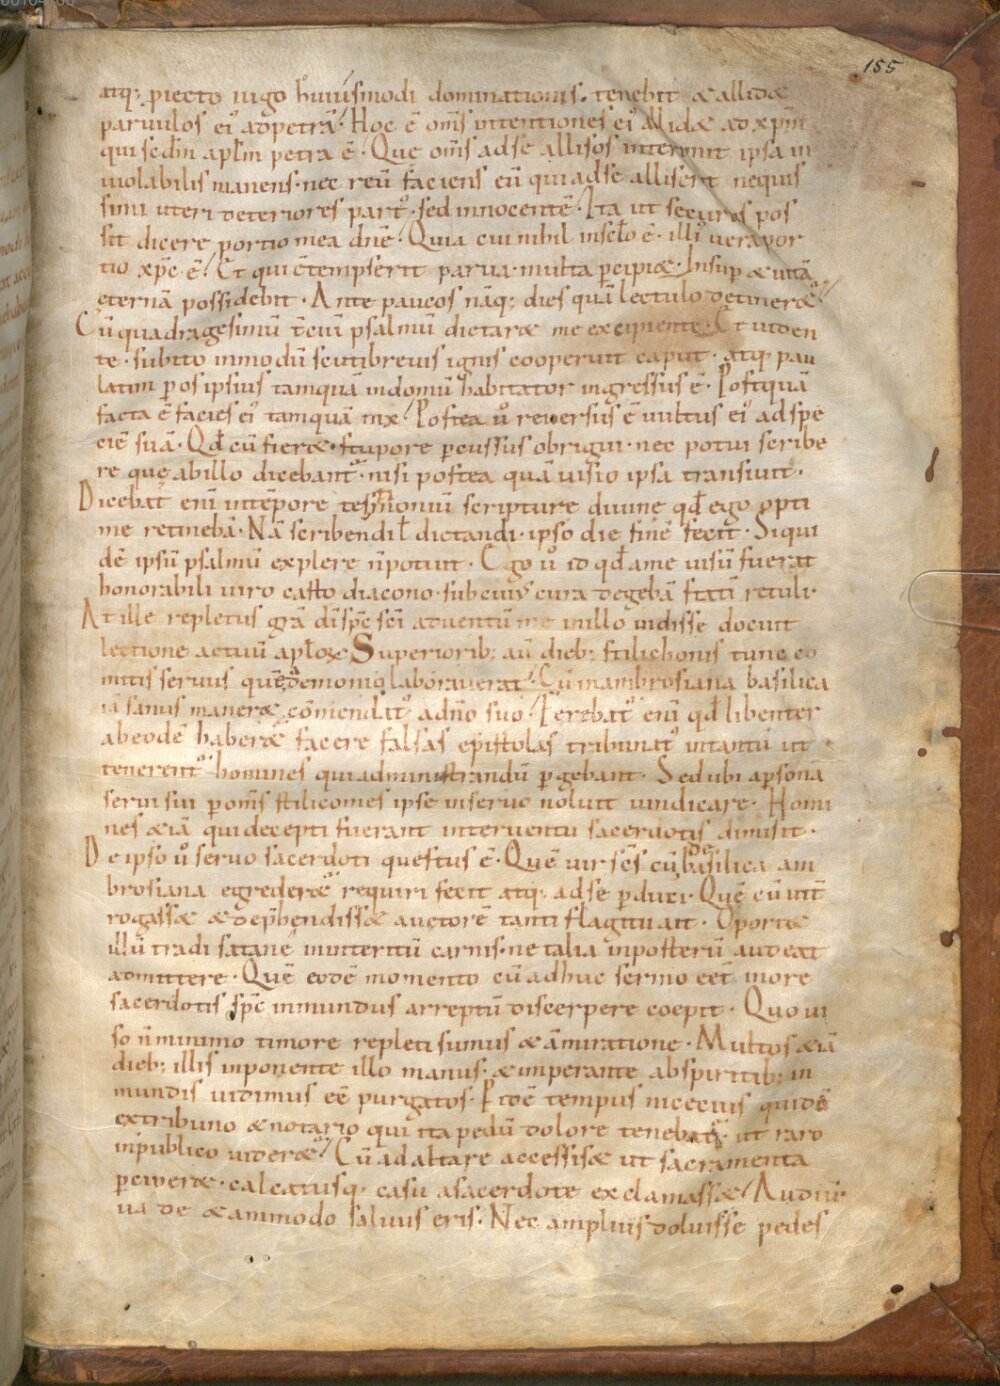 155
atq; piecto iugo huiusmodi dominationis. tenebit & allid&
paruulos ei' adpetrā. Hoc ē om̄s intentiones ei' allid& ad xp̄m
qui sc̄dm apl̄m petra ē. Que om̄s adse allisos interimit ipsa in
uiolabilis manens. nec reū faciens eū qui adse alliserit nequis
simi uteri deteriores part'. sed innocentē. Ita ut securus pos
sit dicere portio mea dn̄e. Quia cui nihil insc̄lo ē. illi' uera por
tio xp̄c ē. Et qui cōtempserit parua. multa percipi&. Insup & uitā
eternā possidebit. Ante paucos nāq; dies quā lectulo detiner&
Cū quadragesimū t̄ciū psalmū dictar& me excipiente. Et uiden
te. subito inmodū scuti breuis ignis cooperuit caput. atq; pau
latim p os ipsius tamquā indomū habitator ingressus ē. Postquā
facta ē facies ei' tamquā nix. Postea ū reuersus ē uultus ei' ad spe
ciē suā. Qd̄ cū fier&. stupore pcussus obrigui. nec potui scribe
re que abillo dicebant'. nisi postea quā uisio ipsa transiuit.
Dicebat enī intēpore testimoniū scripture diuine qd̄ ego opti
me retinebā. Nā scribendi l̄ dictandi. ipso die finē fecit. Siqui
dē ipsū psalmū explere n̄potuit. Ego ū id qd̄ ame uisū fuerat
honorabili uiro casto diacono. sub cui' cura degebā statī retuli.
At ille repletus grā dī sp̄c sc̄i aduentū me inillo uidisse docuit
lectione actuū aplo2. Superiorib; aū dieb; stiliconis tunc co
mitis seruus quē demonio laborauerat. Cū inambrosiana basilica
iā sanus maner& cōmendat' adn̄o suo. Ferebat' enī qd̄ libenter
abeodē haber& facere falsas epistolas tribunat' intantū ut
tenerent' homines qui administrandū pgebant. Sed ubi apsonā
serui sui p om̄s stilicomes ipse inseruo noluit uindicare. Homi
nes &iā qui decepti fuerant interuentu sacerdotis dimisit.
De ipso ū seruo sacerdoti questus ē. Quē uir sc̄s cū de basilica am
brosiana egreder& requiri fecit atq; adse pduci. Quē cū int̄
rogass& & dep̄hendiss& auctorē tanti flagitii ait. Oport&
illū tradi satane ininteritū carnis. ne talia inposterū audeat
admittere. Quē eodē momento cū adhuc sermo eēt inore
sacerdotis sp̄c inmundus arreptū discerpere coepit. Quo ui
so n̄minimo timore repleti sumus & āmiratione. Multos &iā
dieb; illis inponente illo manus. & imperante abspiritib; in
mundis uidimus eē purgatos. P idē tempus niceuus quidā
extribuno & notario qui ita pedū dolore tenebat' ut raro
inpublico uider&. Cū ad altare accessis& ut sacramenta
pciper&. calcatusq; casu asacerdote exclamass&. Audiui
ua de & ammodo saluus eris. Nec amplius doluisse pedes